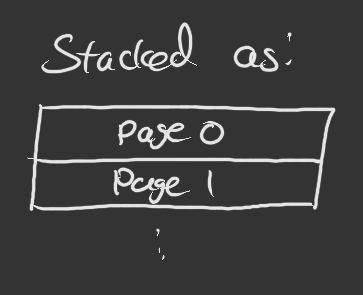 Stacked as:
Page 0
Page 1
⋮